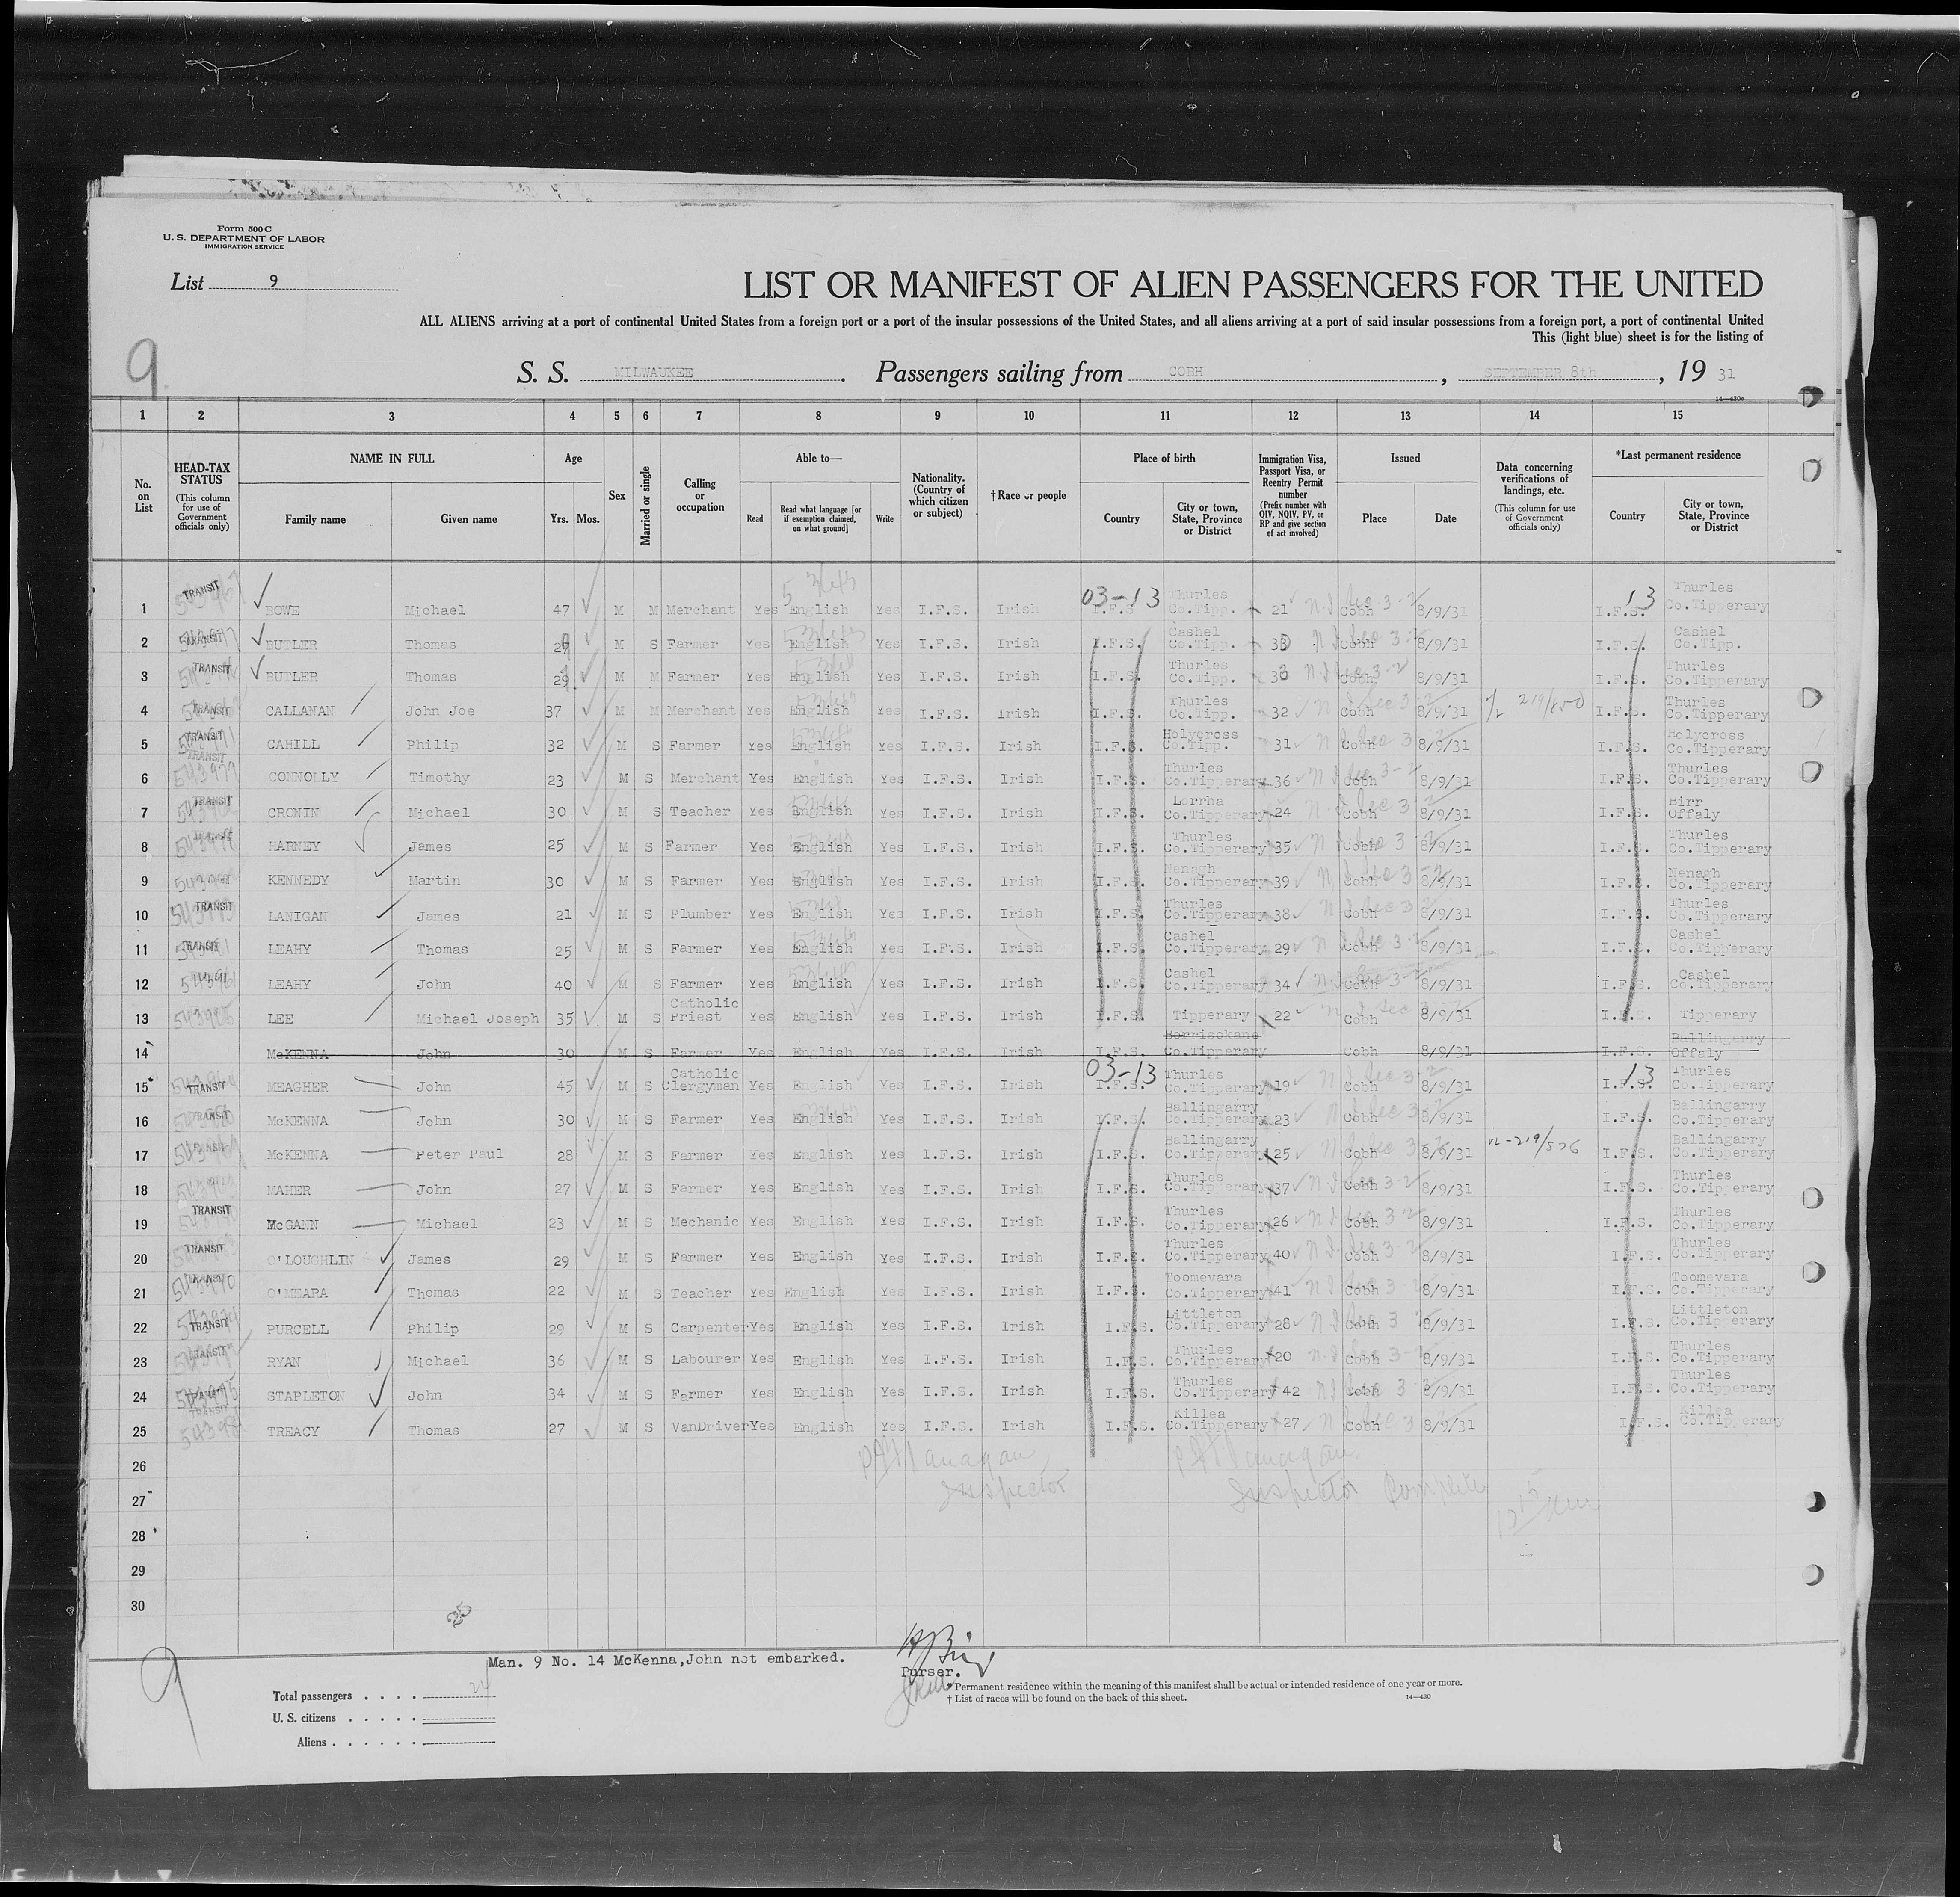 Form 500 C
U. S. DEPARTMENT OF LABOR
IMMIGRATION SERVICE
List 9
LIST OR MANIFEST OF ALIEN PASSENGERS FOR THE UNITED
ALL ALIENS arriving at a port of continental United States from a foreign port or a port of the insular possessions of the United States, and all aliens arriving at a port of said insular possessions from a foreign port, a port of continental United
This (light blue) sheet is for the listing of
9
S. S. MILWAUKEE. Passengers sailing from COBH, SEPTEMBER 8th, 19 31
14—430c
1 2 3 4 5 6 7 8 9 10 11 12 13 14 15
No. on List
HEAD-TAX STATUS (This column for use of Government officials only)
NAME IN FULL
Family name
Given name
Age
Yrs. Mos.
Sex
Married or single
Calling or occupation
Able to—
Read
Read what language [or if exemption claimed, on what ground]
Write
Nationality. (Country of which citizen or subject)
† Race or people
Place of birth
Country
City or town, State, Province or District
Immigration Visa, Passport Visa, or Reentry Permit number (Prefix number with QIV, NQIV, PV, or RP and give section of act involved)
Issued
Place
Date
Data concerning verifications of landings, etc. (This column for use of Government officials only)
*Last permanent residence
Country
City or town, State, Province or District
03-13 13
1 TRANSIT BOWE Michael 47 M M Merchant Yes English Yes I.F.S. Irish I.F.S. Thurles Co.Tipp. 21 Cobh 8/9/31 I.F.S. Thurles Co.Tipperary
2 BUTLER Thomas M S Farmer Yes English Yes I.F.S. Irish I.F.S. Cashel Co.Tipp. Cobh 8/9/31 I.F.S. Cashel Co.Tipp.
3 TRANSIT BUTLER Thomas 29 M M Farmer Yes English Yes I.F.S. Irish I.F.S. Thurles Co.Tipp. Cobh 8/9/31 I.F.S. Thurles Co.Tipperary
4 TRANSIT CALLANAN John Joe 37 M M Merchant Yes English Yes I.F.S. Irish I.F.S. Thurles Co.Tipp. 32 Cobh 8/9/31 219/850 I.F.S. Thurles Co.Tipperary
5 TRANSIT CAHILL Philip 32 M S Farmer Yes English Yes I.F.S. Irish I.F.S. Holycross Co.Tipp. 31 Cobh 8/9/31 I.F.S. Holycross Co.Tipperary
6 TRANSIT CONNOLLY Timothy 23 M S Merchant Yes English Yes I.F.S. Irish I.F.S. Thurles Co.Tipperary 36 Cobh 8/9/31 I.F.S. Thurles Co.Tipperary
7 TRANSIT CRONIN Michael 30 M S Teacher Yes English Yes I.F.S. Irish I.F.S. Lorrha Co.Tipperary 24 Cobh 8/9/31 I.F.S. Birr Offaly
8 HARNEY James 25 M S Farmer Yes English Yes I.F.S. Irish I.F.S. Thurles Co.Tipperary 35 Cobh 8/9/31 I.F.S. Thurles Co.Tipperary
9 KENNEDY Martin 30 M S Farmer Yes English Yes I.F.S. Irish I.F.S. Nenagh Co.Tipperary 39 Cobh 8/9/31 I.F.S. Nenagh Co.Tipperary
10 TRANSIT LANIGAN James 21 M S Plumber Yes English Yes I.F.S. Irish I.F.S. Thurles Co.Tipperary 38 Cobh 8/9/31 I.F.S. Thurles Co.Tipperary
11 TRANSIT LEAHY Thomas 25 M S Farmer Yes English Yes I.F.S. Irish I.F.S. Cashel Co.Tipperary 29 Cobh 8/9/31 I.F.S. Cashel Co.Tipperary
12 LEAHY John 40 M S Farmer Yes English Yes I.F.S. Irish I.F.S. Cashel Co.Tipperary 34 Cobh 8/9/31 I.F.S. Cashel Co.Tipperary
13 LEE Michael Joseph 35 M S Catholic Priest Yes English Yes I.F.S. Irish I.F.S. Tipperary 22 Cobh 8/9/31 I.F.S. Tipperary
14 McKENNA John 30 M S Farmer Yes English Yes I.F.S. Irish I.F.S. Borrisokane Co.Tipperary Cobh 8/9/31 I.F.S. Ballingarry Offaly
03-13 13
15 TRANSIT MEAGHER John 45 M S Catholic Clergyman Yes English Yes I.F.S. Irish I.F.S. Thurles Co.Tipperary 19 Cobh 8/9/31 I.F.S. Thurles Co.Tipperary
16 TRANSIT McKENNA John 30 M S Farmer Yes English Yes I.F.S. Irish I.F.S. Ballingarry Co.Tipperary 23 Cobh 8/9/31 I.F.S. Ballingarry Co.Tipperary
17 McKENNA Peter Paul 28 M S Farmer Yes English Yes I.F.S. Irish I.F.S. Ballingarry Co.Tipperary 25 Cobh 8/9/31 I.F.S. Ballingarry Co.Tipperary
18 MAHER John 27 M S Farmer Yes English Yes I.F.S. Irish I.F.S. Thurles Co.Tipperary 37 Cobh 8/9/31 I.F.S. Thurles Co.Tipperary
19 TRANSIT McGANN Michael 23 M S Mechanic Yes English Yes I.F.S. Irish I.F.S. Thurles Co.Tipperary 26 Cobh 8/9/31 I.F.S. Thurles Co.Tipperary
20 TRANSIT O'LOUGHLIN James 29 M S Farmer Yes English Yes I.F.S. Irish I.F.S. Thurles Co.Tipperary 40 Cobh 8/9/31 I.F.S. Thurles Co.Tipperary
21 TRANSIT O'MEARA Thomas 22 M S Teacher Yes English Yes I.F.S. Irish I.F.S. Toomevara Co.Tipperary 41 Cobh 8/9/31 I.F.S. Toomevara Co.Tipperary
22 TRANSIT PURCELL Philip 29 M S Carpenter Yes English Yes I.F.S. Irish I.F.S. Littleton Co.Tipperary 28 Cobh 8/9/31 I.F.S. Littleton Co.Tipperary
23 TRANSIT RYAN Michael 36 M S Labourer Yes English Yes I.F.S. Irish I.F.S. Thurles Co.Tipperary 20 Cobh 8/9/31 I.F.S. Thurles Co.Tipperary
24 TRANSIT STAPLETON John 34 M S Farmer Yes English Yes I.F.S. Irish I.F.S. Thurles Co.Tipperary 42 Cobh 8/9/31 I.F.S. Thurles Co.Tipperary
25 TRANSIT TREACY Thomas 27 M S VanDriver Yes English Yes I.F.S. Irish I.F.S. Killea Co.Tipperary 27 Cobh 8/9/31 I.F.S. Killea Co.Tipperary
26
Inspector Inspector Complete
27
28
29
30
25
Man. 9 No. 14 McKenna,John not embarked.
Purser.
9
Total passengers . . . . 24
U. S. citizens . . . . .
Aliens . . . . . .
* Permanent residence within the meaning of this manifest shall be actual or intended residence of one year or more.
† List of races will be found on the back of this sheet.
14—430